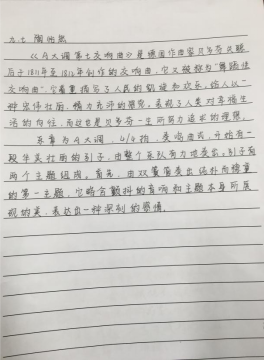 九.七 陶
《A大调第七交响曲》是德国作曲家贝多芬失聪
后于1811年至1812年创作的交响曲,它又被称为"舞蹈性
交响曲",它着重描写了人民的凯旋和欢乐,给人以一
种宏伟壮丽,精力充沛的感觉,表现了人类对幸福生
活的向往,而这也是贝多芬一生所努力追求的理想。
乐章为A大调,4/4拍,奏鸣曲式,开始有一
段华美壮丽的引子,由整个乐队有力地奏出,引子有
两个主题组成。首先,由双簧管奏出缓朴而稳重
的第一主题,它略含颤抖的音响和主题本身所展
现的美,表达出一种深刻的感情。